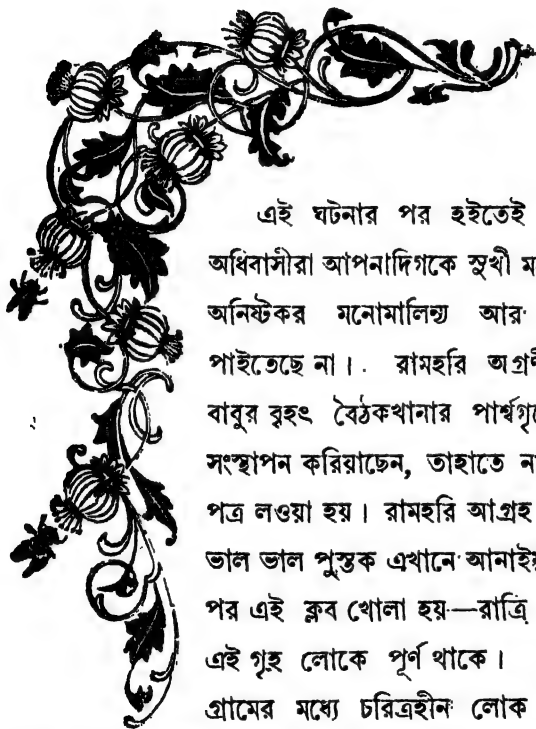 এই ঘটনার পর হইতেই
অধিবাসীরা আপনাদিগকে সুখী ম
অনিষ্টকর মনোমালিন্য আর
পাইতেছে না। রামহরি অগ্রণী
বাবুর বৃহৎ বৈঠকখানার পার্শ্বগৃহে
সংস্থাপন করিয়াছেন, তাহাতে না
পত্র লওয়া হয়। রামহরি আগ্রহ
ভাল ভাল পুস্তক এখানে আনাইয়
পর এই ক্লব খোলা হয়—রাত্রি
এই গৃহ লোকে পূর্ণ থাকে।
গ্রামের মধ্যে চরিত্রহীন লোক